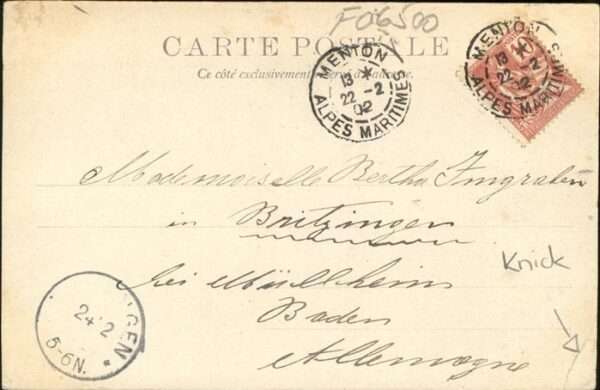 F06500
CARTE POSTALE
Ce côté exclusivement réservé à l'adresse.
MENTON
13 *
22 -2
02
ALPES MARITIMES
MENTON
13 *
22 -2
02
ALPES MARITIMES
Mademoiselle Bertha Imgraben
in Britzingen
bei Müllheim
Baden
Allemagne
Knick
INGEN *
24 2
5-6N.